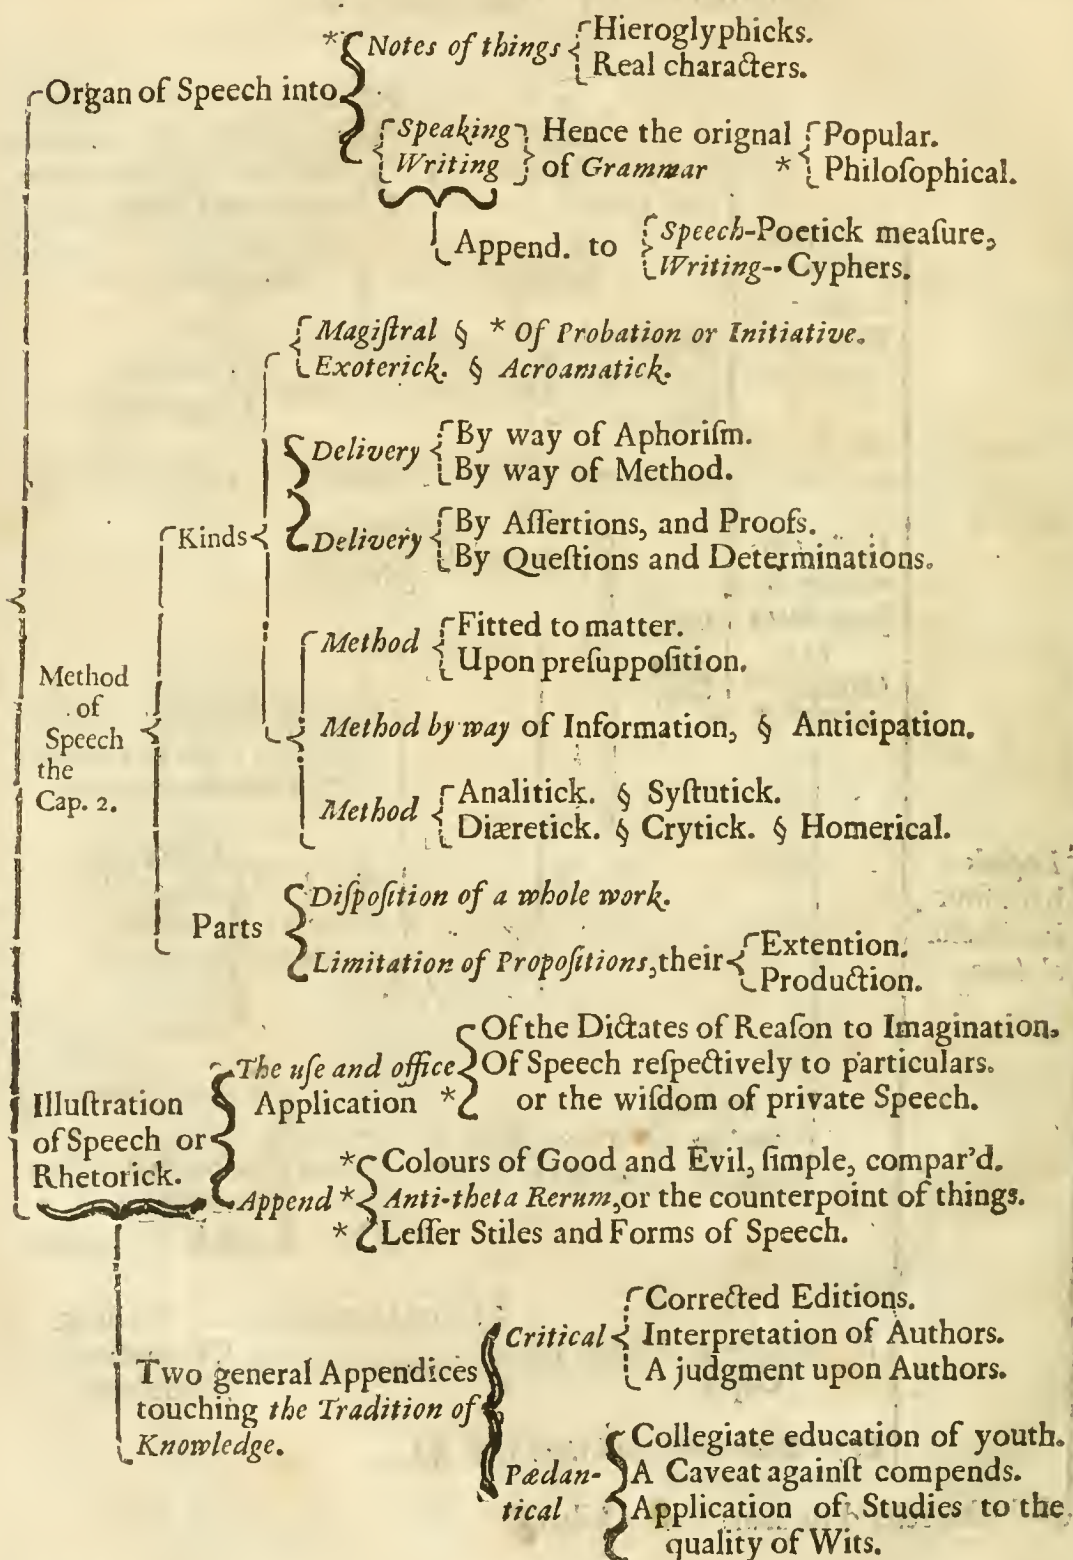 * Notes of things Hieroglyphicks.
Real characters.
Organ of Speech into
Speaking Hence the orignal Popular.
Writing of Grammar * Philoſophical.
Append. to Speech-Poetick meaſure,
Writing-- Cyphers.
Magiſtral § * Of Probation or Initiative.
Exoterick. § Acroamatick.
Delivery By way of Aphoriſm.
By way of Method.
Kinds
Delivery By Aſſertions, and Proofs.
By Queſtions and Determinations.
Method Fitted to matter.
Upon preſuppoſition.
Method
of
Speech
the
Cap. 2.
Method by way of Information, § Anticipation.
Method Analitick. § Syſtutick.
Diæretick. § Crytick. § Homerical.
Parts
Diſpoſition of a whole work.
Limitation of Propoſitions, their Extention.
Production.
Illuſtration
of Speech or
Rhetorick.
The uſe and office Of the Dictates of Reaſon to Imagination.
Application * Of Speech reſpectively to particulars.
or the wiſdom of private Speech.
Append * * Colours of Good and Evil, ſimple, compar'd.
Anti-theta Rerum, or the counterpoint of things.
* Leſſer Stiles and Forms of Speech.
Two general Appendices
touching the Tradition of
Knowledge.
Critical Corrected Editions.
Interpretation of Authors.
A judgment upon Authors.
Pædan-
tical
Collegiate education of youth.
A Caveat againſt compends.
Application of Studies to the
quality of Wits.